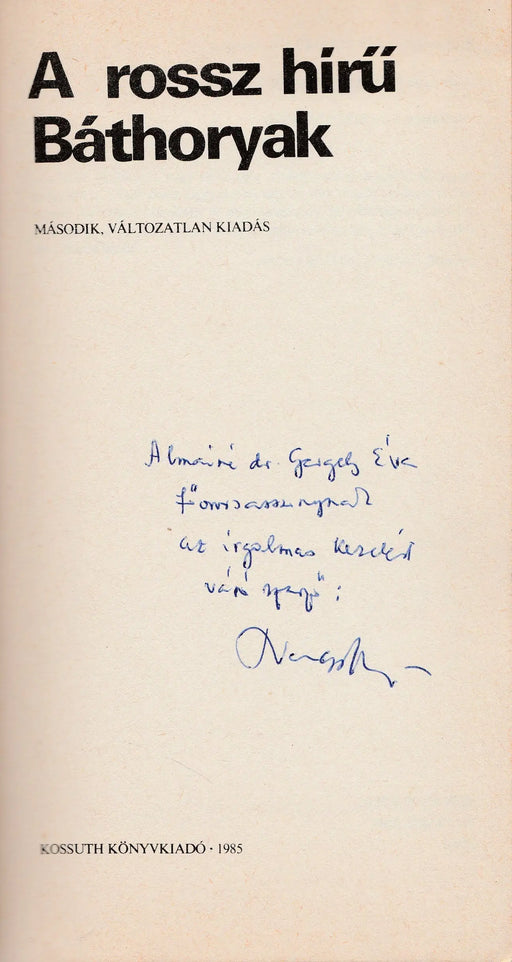 A rossz hírű
Báthoryak
MÁSODIK, VÁLTOZATLAN KIADÁS
Almáiné dr. Gergely Éva
főorvosasszonynak
az irgalmas kezelést
váró szerző :
KOSSUTH KÖNYVKIADÓ · 1985